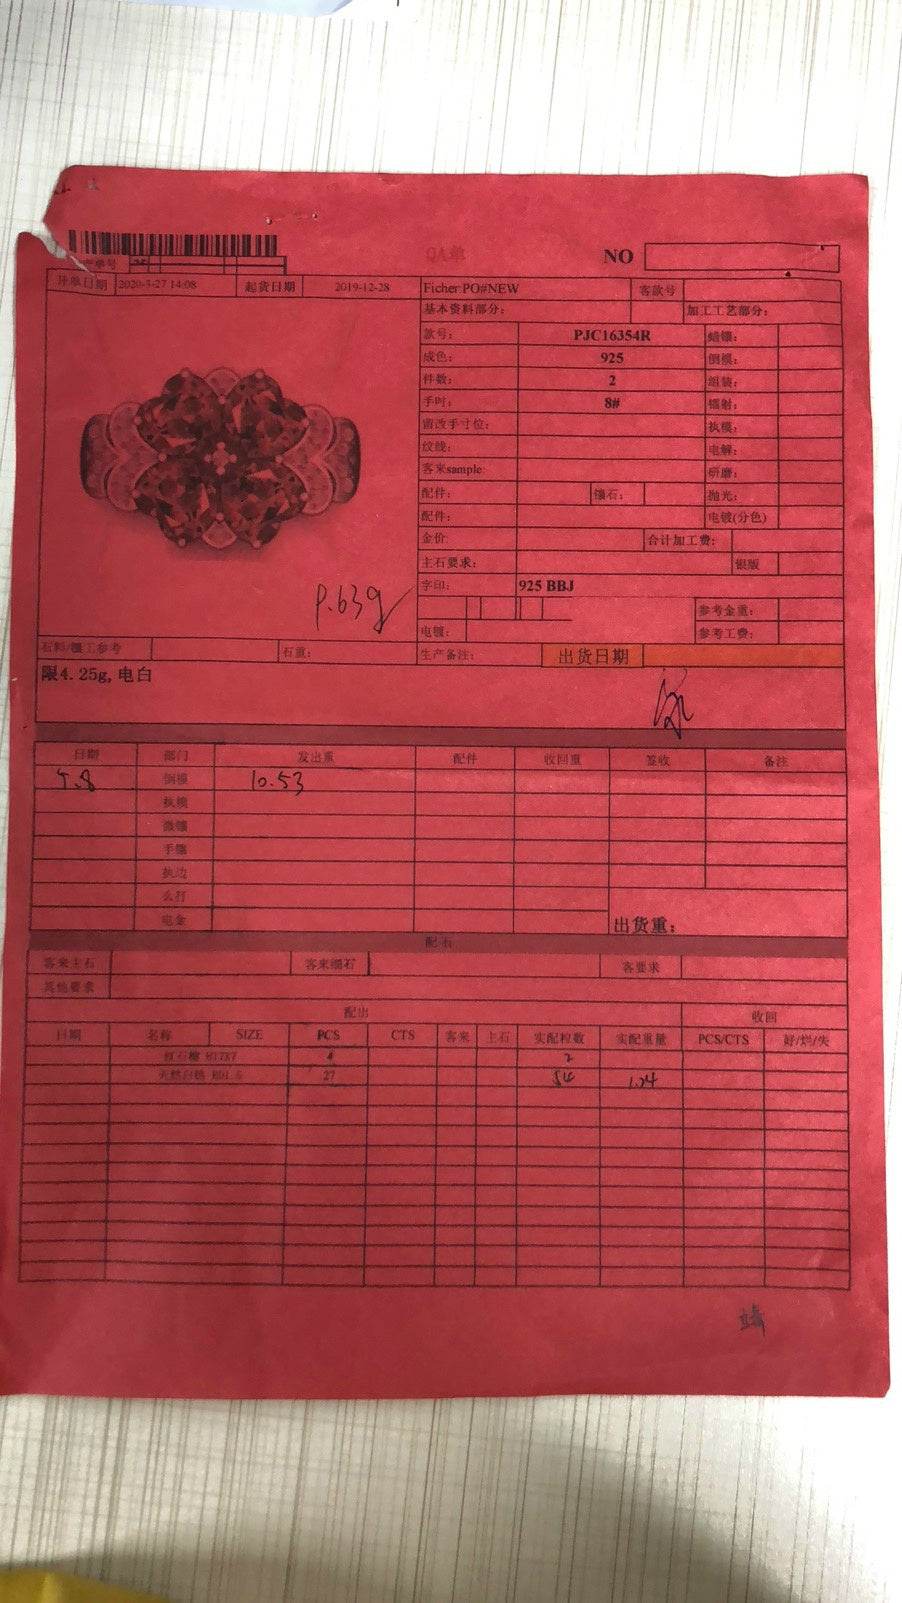 QA单
NO
产单号
开单日期 2020-3-27 14:08 起货日期 2019-12-28 Ficher:PO#NEW 客款号
基本资料部分: 加工工艺部分:
款号: PJC16354R 蜡镶:
成色: 925 倒模:
件数: 2 组装:
手吋: 8# 镭射:
留改手寸位: 执模:
纹线: 电解:
客来sample: 研磨:
配件: 镶石: 抛光:
配件: 电镀(分色)
金价 合计加工费:
主石要求: 银版
字印: 925 BBJ
参考金重:
电镀: 参考工费:
石料/镶工参考 石重: 生产备注: 出货日期
限4.25g,电白
日期 部门 发出重 配件 收回重 签收 备注
5.8 倒模 10.53
执模
微镶
手镶
执边
么打
电金 出货重:
配石
客来主石 客来细石 客要求
其他要求
配出 收回
日期 名称 SIZE PCS CTS 客来 主石 实配粒数 实配重量 PCS/CTS 好/烂/失
4 2
27 54 1.24